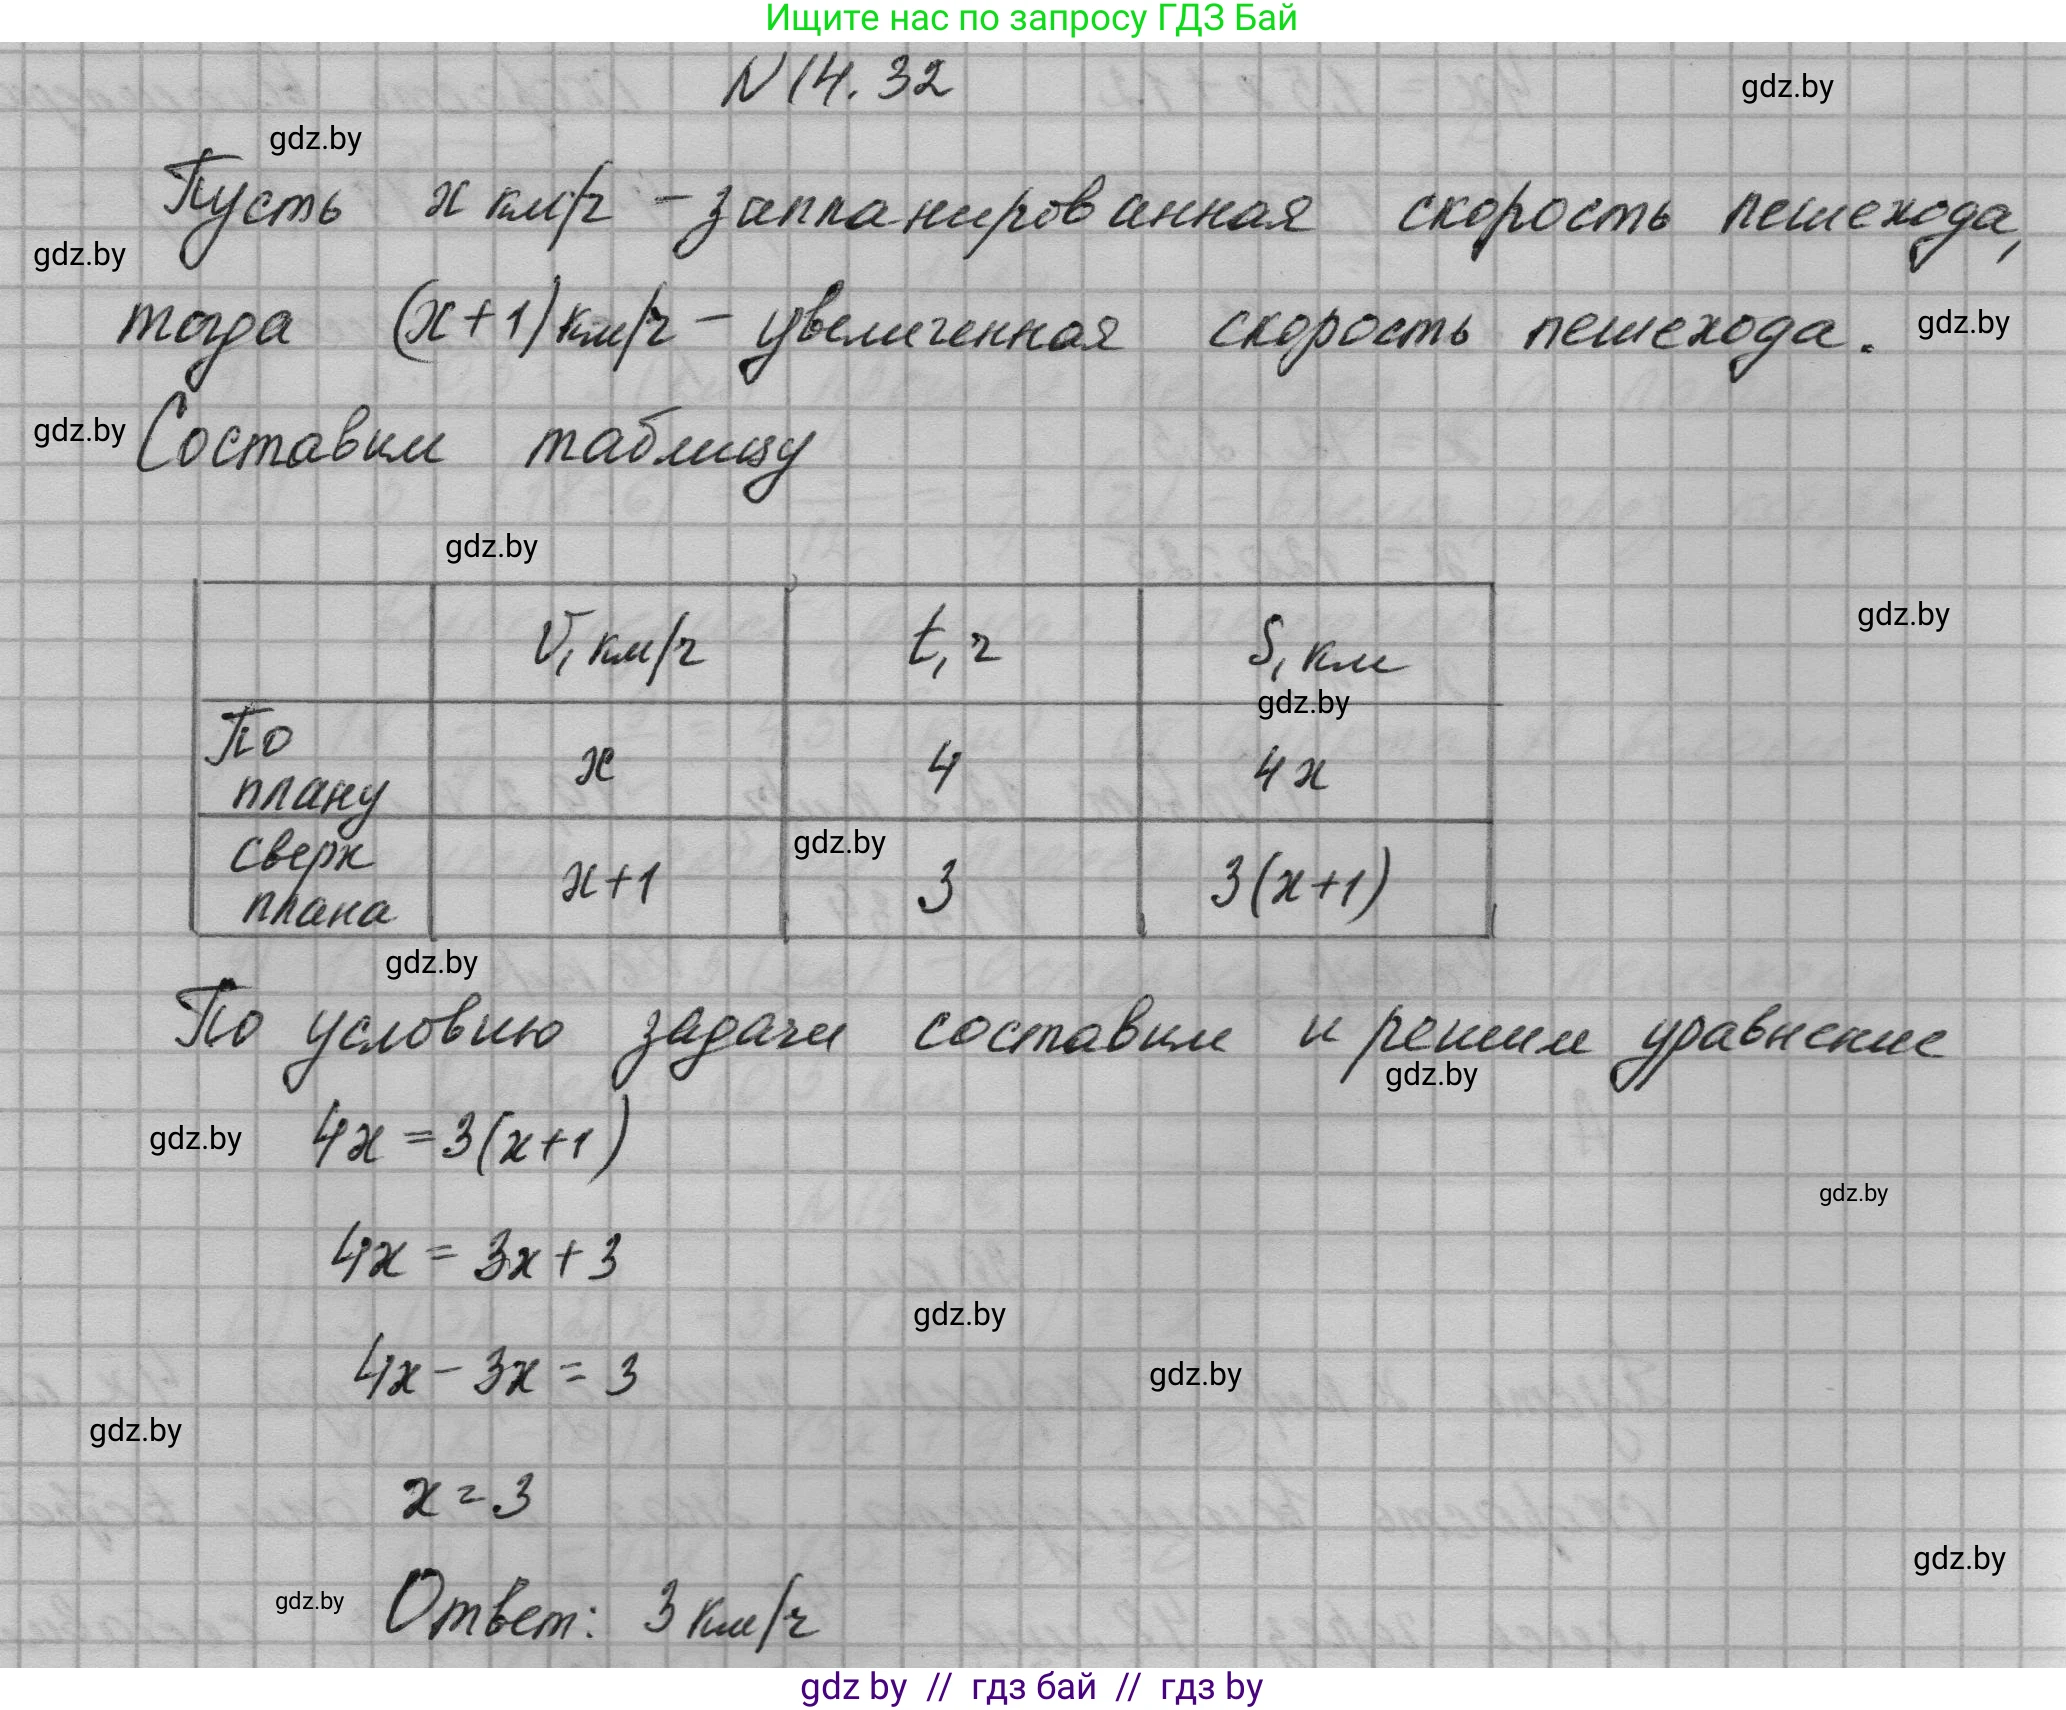 Ищите нас по запросу ГДЗ Бай
N 14.32
gdz.by
gdz.by
Пусть x км/ч - запланированная скорость пешехода,
gdz.by
тогда (x+1) км/ч - увеличенная скорость пешехода.
gdz.by
gdz.by
Составим таблицу
gdz.by
gdz.by
V, км/ч t, ч S, км
gdz.by
По плану x 4 4x
gdz.by
сверх плана x+1 3 3(x+1)
gdz.by
По условию задачи составим и решим уравнение
gdz.by
gdz.by
4x = 3(x+1)
gdz.by
4x = 3x + 3
gdz.by
4x - 3x = 3
gdz.by
gdz.by
x = 3
gdz.by
gdz.by
Ответ: 3 км/ч
gdz by // гдз бай // гдз by